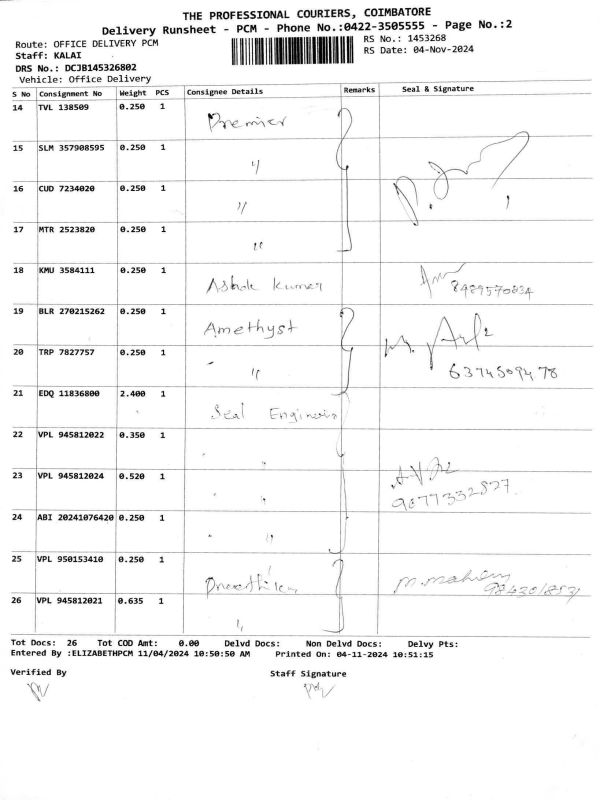 THE PROFESSIONAL COURIERS, COIMBATORE
Delivery Runsheet - PCM - Phone No.:0422-3505555 - Page No.:2
Route: OFFICE DELIVERY PCM
RS No.: 1453268
Staff: KALAI
RS Date: 04-Nov-2024
DRS No.: DCJB145326802
Vehicle: Office Delivery
S No Consignment No Weight PCS Consignee Details Remarks Seal & Signature
14 TVL 138509 0.250 1 Premier
15 SLM 357908595 0.250 1 "
16 CUD 7234020 0.250 1 "
17 MTR 2523820 0.250 1 "
18 KMU 3584111 0.250 1 Ashok Kumar 8489570834
19 BLR 270215262 0.250 1 Amethyst
20 TRP 7827757 0.250 1 " 6374509478
21 EDQ 11836800 2.400 1 Seal Engineers
22 VPL 945812022 0.350 1 "
23 VPL 945812024 0.520 1 "
24 ABI 20241076420 0.250 1 "
25 VPL 950153410 0.250 1
26 VPL 945812021 0.635 1 "
Tot Docs: 26 Tot COD Amt: 0.00 Delvd Docs: Non Delvd Docs: Delvy Pts:
Entered By :ELIZABETHPCM 11/04/2024 10:50:50 AM Printed On: 04-11-2024 10:51:15
Verified By Staff Signature